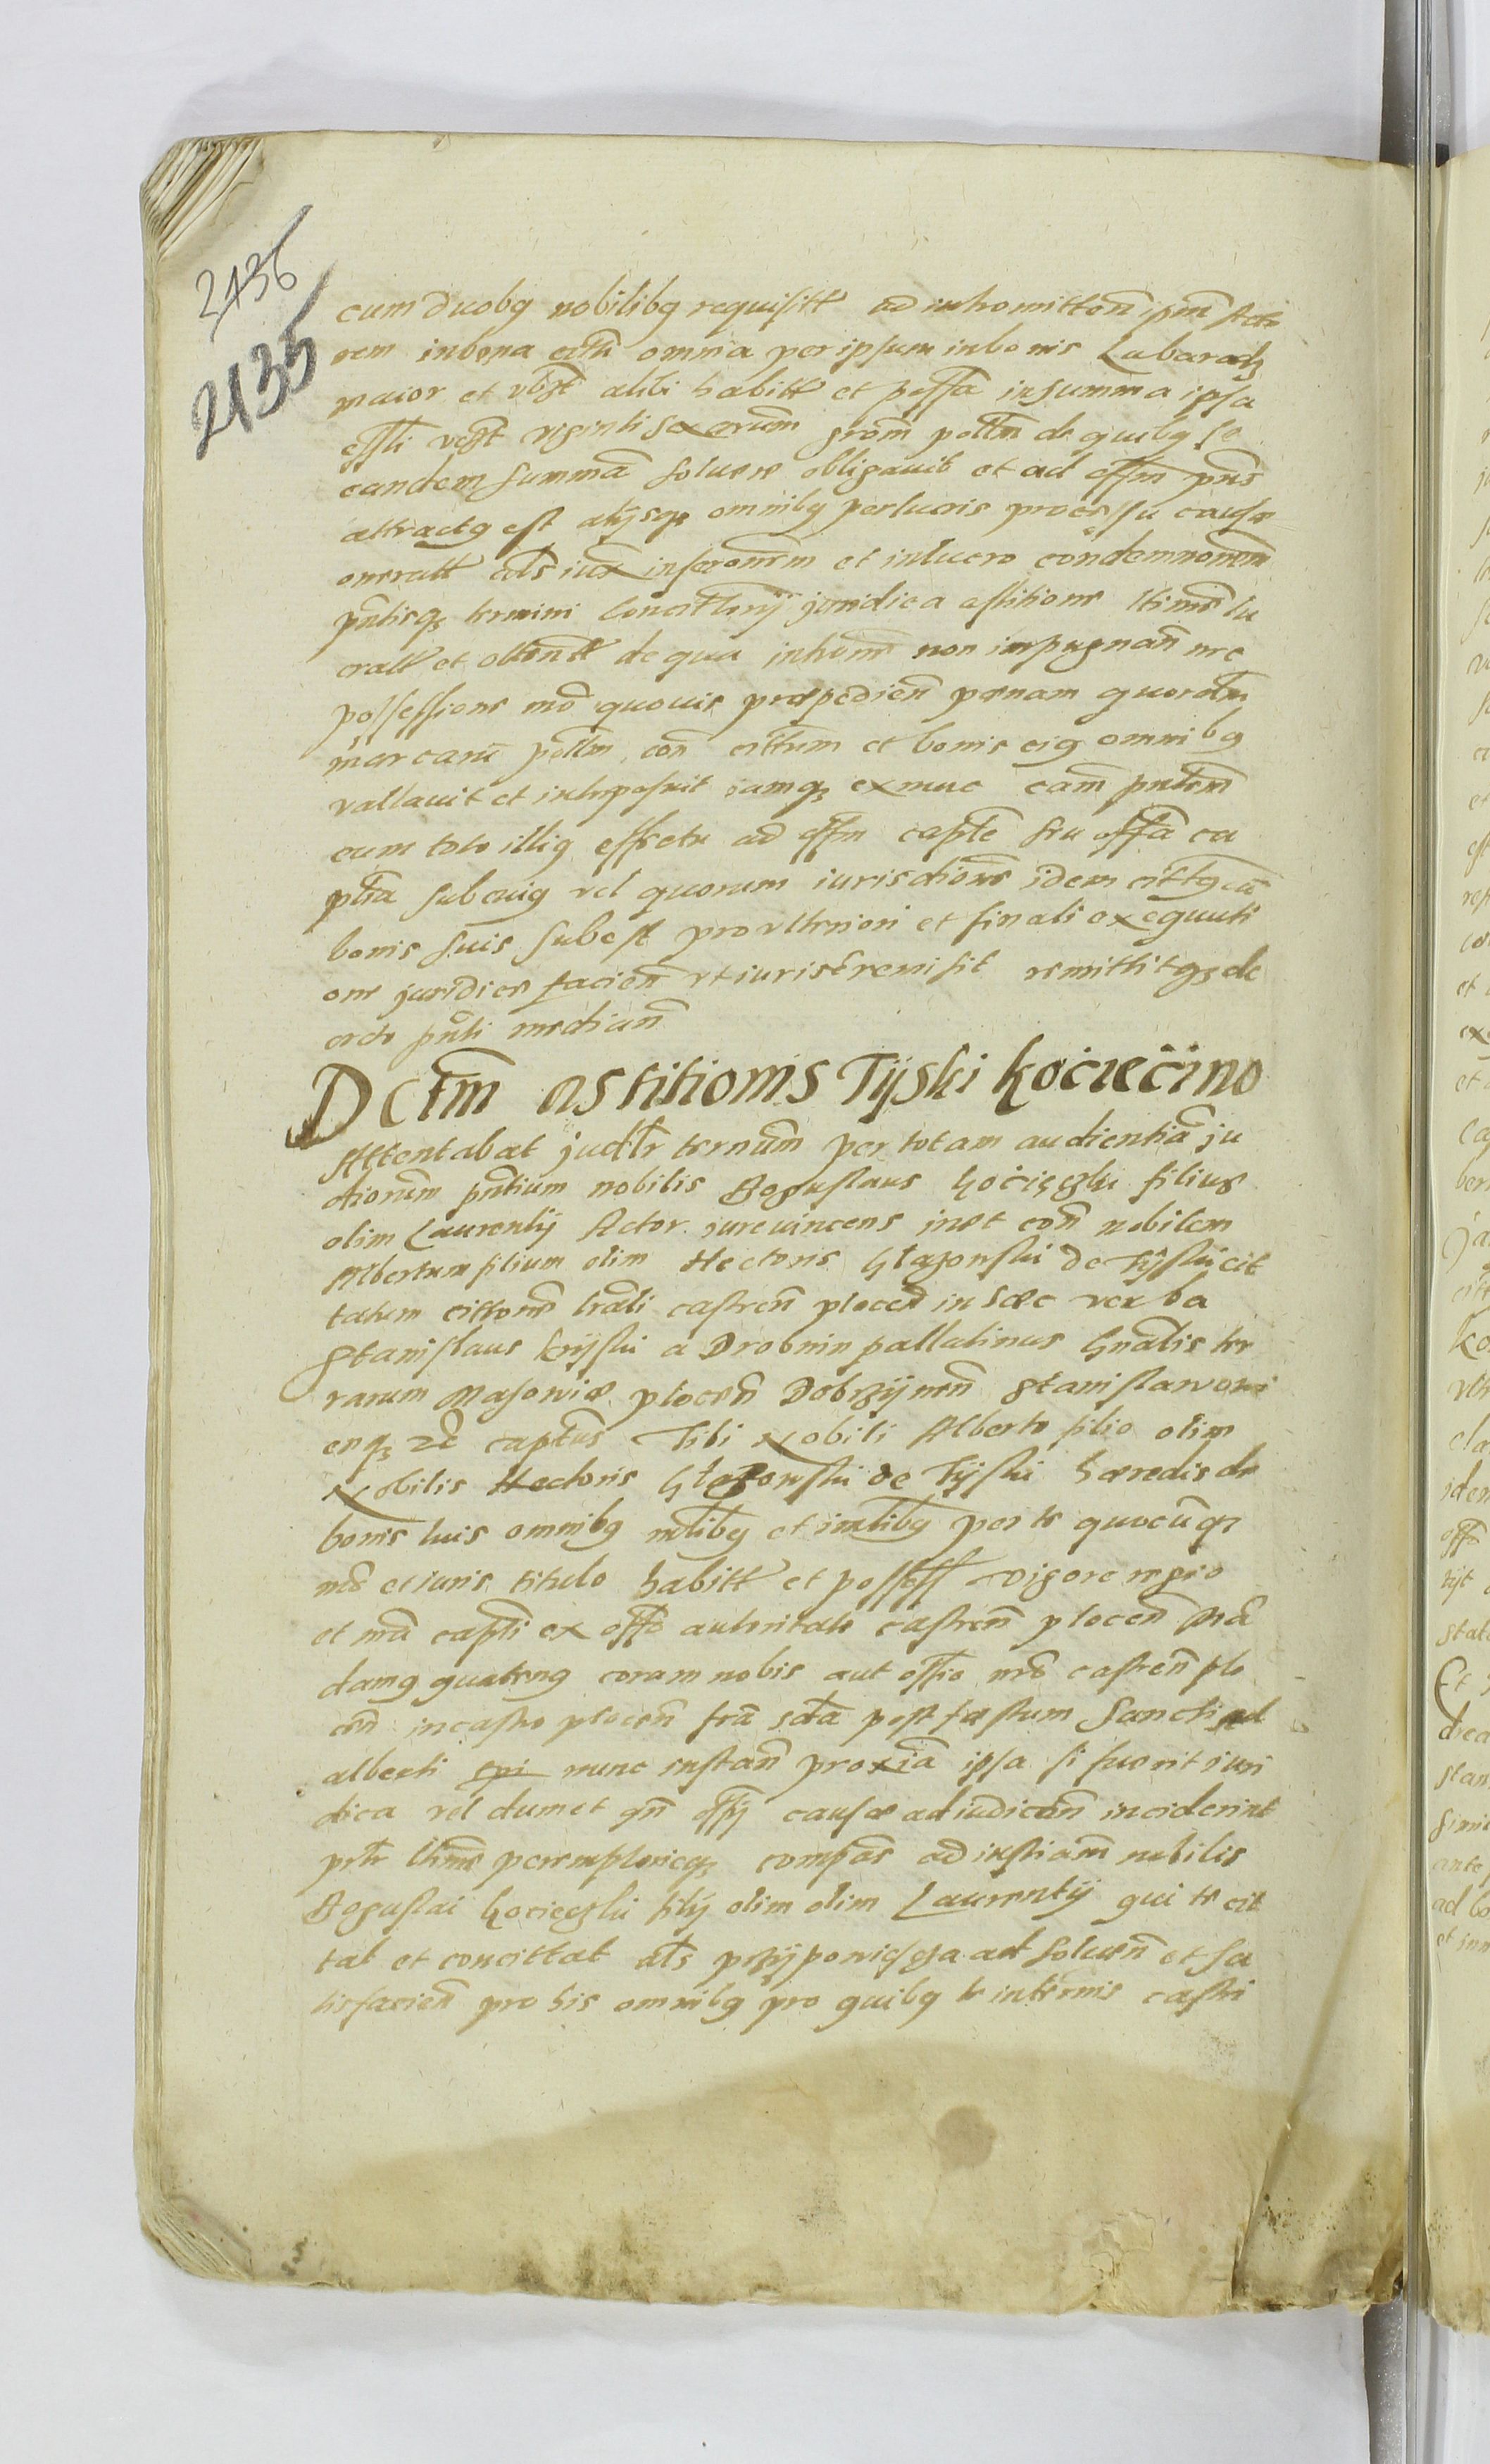 2736
2135
cum duobq nobilibq requisitt ad intromitten ipm Acto
rem in bona cittti omnia per ipsum in bonis Lubaradz
maior et vbqt alibi habitt et possa in summa ipsa
effti vegt viginti sexcerum grom poltm de quibq se
eandem summa soluere obligauit et ad effm pns
attractq est alijsqz omnibq per lucris processu causæ
oneratt als iux insceronem et in lucro condemnonem
pntisqz termini Concittorij juridica astitione ltime lu
cratt et obtentt de qua introm non impugnan nec
possessione mo quouis præpedien pænam quordm
marcaru poltm con cittum et bonis eiq omnibq
vallauit et interposuit iamqz ex nunc eam pntem
cum toto illiq effectu ad offm capte seu offa ca
ptlia sub cuiq vel quorum iurisdione idem cittq cu
bonis suis subest pro vlteriori et finali exequuti
one juridice facien vt iuris e remisit remittitqz de
creto pnti median
Dcrtm astitionis Tijski Kocięcino
Attentabat judlr ternum per totam audientia ju
dtiorum pntium nobilis Boguslaus Kocięczki filius
olim Laurentij Actor jure vincens inst con nobilem
Albertum filium olim Hectoris Głazowski de Tijski cit
tatum cittone lrali castren plocen in hæc verba
Stanislaus Krijski a Drobnin pallatinus Gnalis ter
rarum Masowiæ plocen Dobrzijnen Stanislawowi
enqz zc captus Tibi Nobili Alberto filio olim
Nobilis Hectoris Głazowski de Tijski hæredis de
bonis tuis omnibq mlibq et imlibq per te quocuqz
mo et iuris titulo habitt et possess vigore regio
et ma captli ex offo autoritate castren plocen Ma
damq quatenq coram nobis aut offio nro castren plo
cen in castro plocen fra scda post festum Sancti ad
alberti epi nunc instan proxia ipsa si fuerit iuri
dica vel dum et qn offij causæ ad iudicandn inciderint
pstr ltime peremptorieqz compas ad instiam nobilis
Boguslai Kocięczki filij olim olim Laurentij qui te cit
tat et concittat als przijpowięcza ad soluen et sa
tisfacien pro his omnibq pro quibq te in termis castri